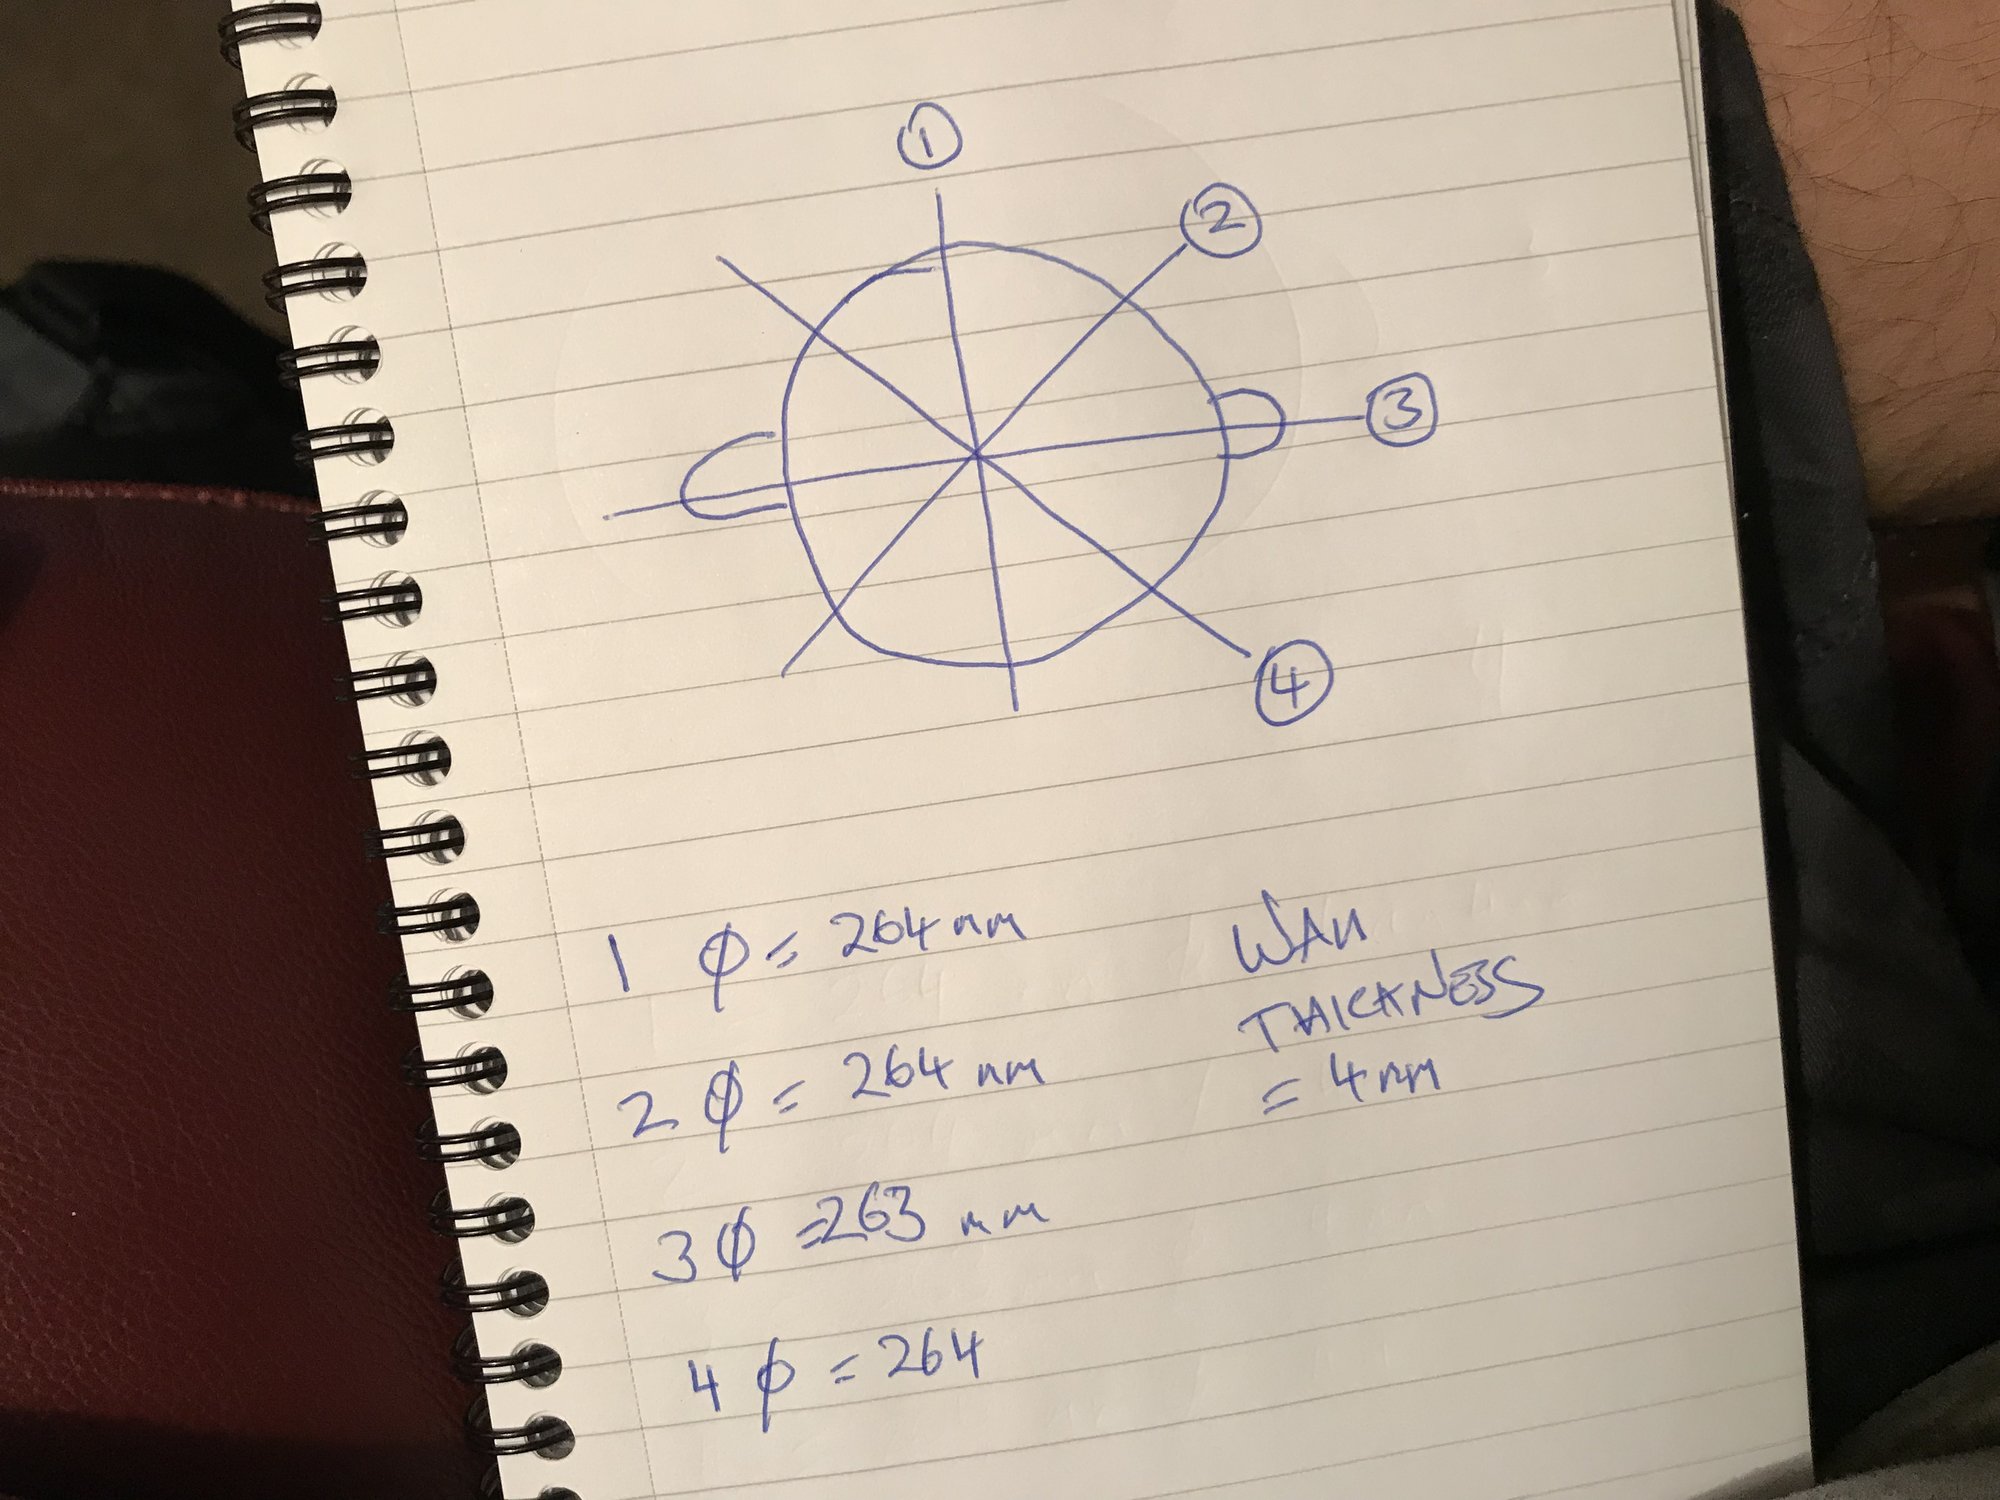 1
2
3
4
1 φ = 264 mm
2 φ = 264 mm
3 φ = 263 mm
4 φ = 264
WALL
THICKNESS
= 4 mm